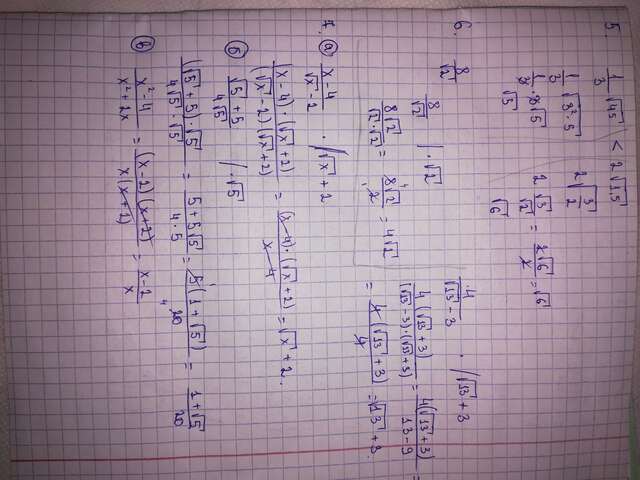 5.
1/3 √45 < 2√1,5
1/3 √(3²·5)
2√(3/2)
1/3 · 3√5
2 √3/√2 = 2√6/2 = √6
√5
√6
6.
8/√2
8/√2 | · √2
8√2/(√2·√2) = 8√2/2 = 4√2
4/(√13 - 3) · | √13 + 3
4(√13 + 3)/((√13 - 3)·(√13 + 3)) = 4(√13 + 3)/(13 - 9) =
= 4(√13 + 3)/4 = √13 + 3.
7. а) (x - 4)/(√x - 2) · | √x + 2
(x - 4)·(√x + 2)/((√x - 2)(√x + 2)) = (x - 4)·(√x + 2)/(x - 4) = √x + 2.
б) (√5 + 5)/(4√5) | · √5
(√5 + 5)·√5/(4√5·√5) = (5 + 5√5)/(4·5) = 5(1 + √5)/20 = (1 + √5)/20
в) (x² - 4)/(x² + 2x) = (x - 2)(x + 2)/(x(x + 2)) = (x - 2)/x